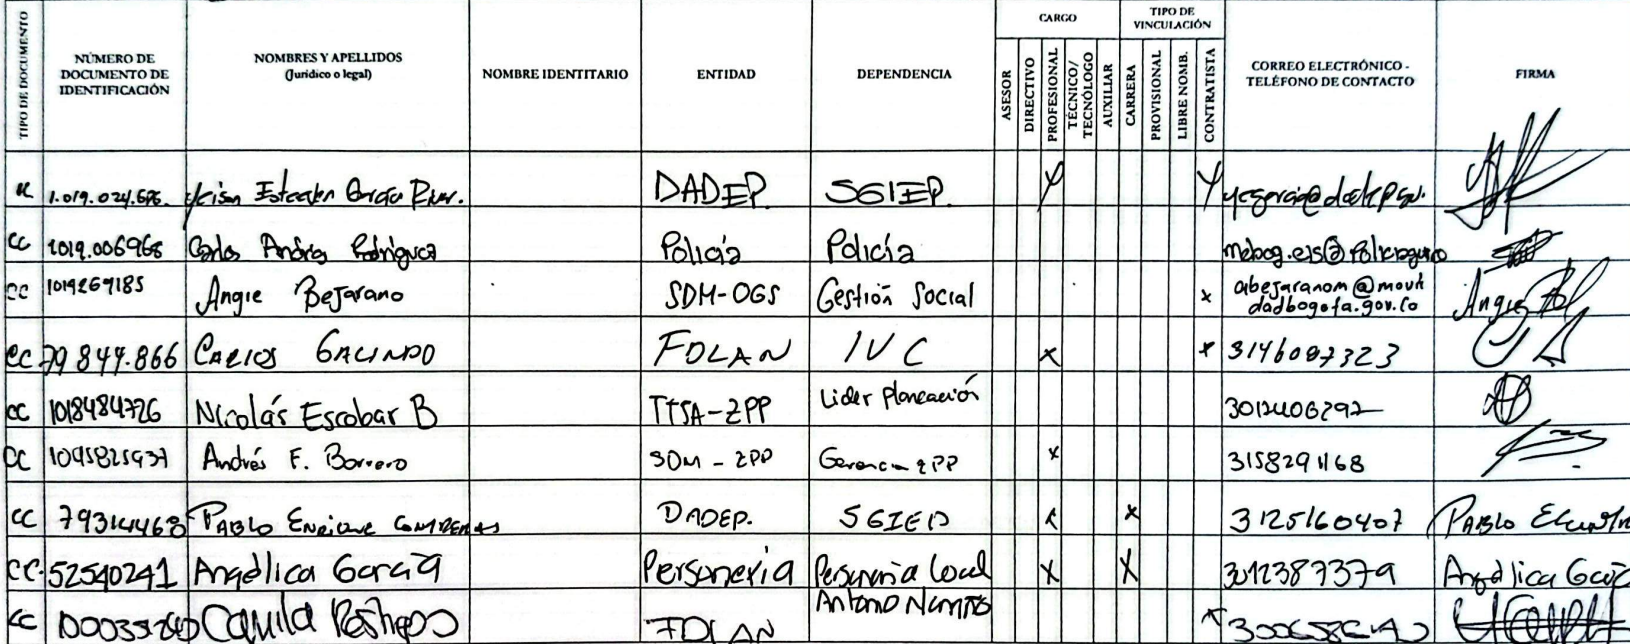 TIPO DE DOCUMENTO
NÚMERO DE DOCUMENTO DE IDENTIFICACIÓN
NOMBRES Y APELLIDOS (Jurídico o legal)
NOMBRE IDENTITARIO
ENTIDAD
DEPENDENCIA
CARGO
ASESOR
DIRECTIVO
PROFESIONAL
TÉCNICO/ TECNÓLOGO
AUXILIAR
TIPO DE VINCULACIÓN
CARRERA
PROVISIONAL
LIBRE NOMB.
CONTRATISTA
CORREO ELECTRÓNICO - TELÉFONO DE CONTACTO
FIRMA
García DADEP. SGIEP.
CC 1019.006968 Carlos Andres Rodriguez Policía Policía
CC 1019269185 Angie Bejarano SDM-OGS Gestión Social x abejaranom@movilidadbogota.gov.co Angie
CC 79 844.866 CARLOS GALINDO FDLAN IVC x x 3146097323
CC 1018484726 Nicolás Escobar B TTSA-ZPP Lider Planeación 3012406292
CC 1095825937 Andrés F. Borrero SDM - ZPP Gerencia ZPP x 3158291168
CC 79314468 PABLO ENRIQUE CONTRERAS DADEP. SGIEP x x 3125160407 PABLO
CC. 52540241 Angélica García Personería Personería Local x x 3012387379 Angélica
Antonio Nariño
CC Camila Restrepo FDLAN